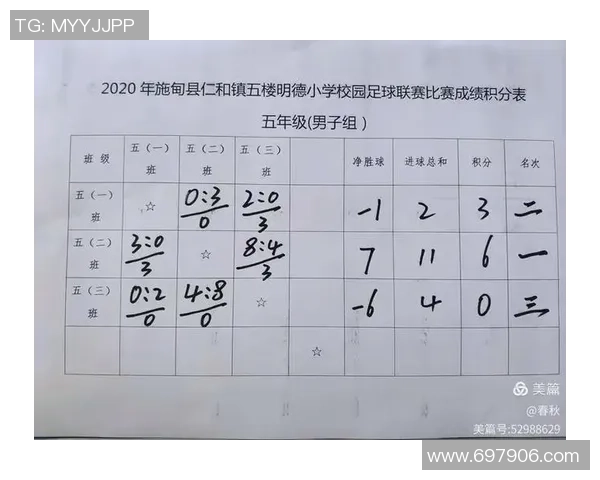 TG: MYYJJPP
2020 年施甸县仁和镇五楼明德小学校园足球联赛比赛成绩积分表
五年级(男子组）
班 级 五（一）班 五（二）班 五（三）班 净胜球 进球总和 积分 名次
五（一）班 ☆ 0:3/0 2:0/3 -1 2 3 二
五（二）班 3:0/3 ☆ 8:4/3 7 11 6 一
五（三）班 0:2/0 4:8/0 ☆ -6 4 0 三
☆
美篇
@春秋
美篇号:52988629
www.697906.com